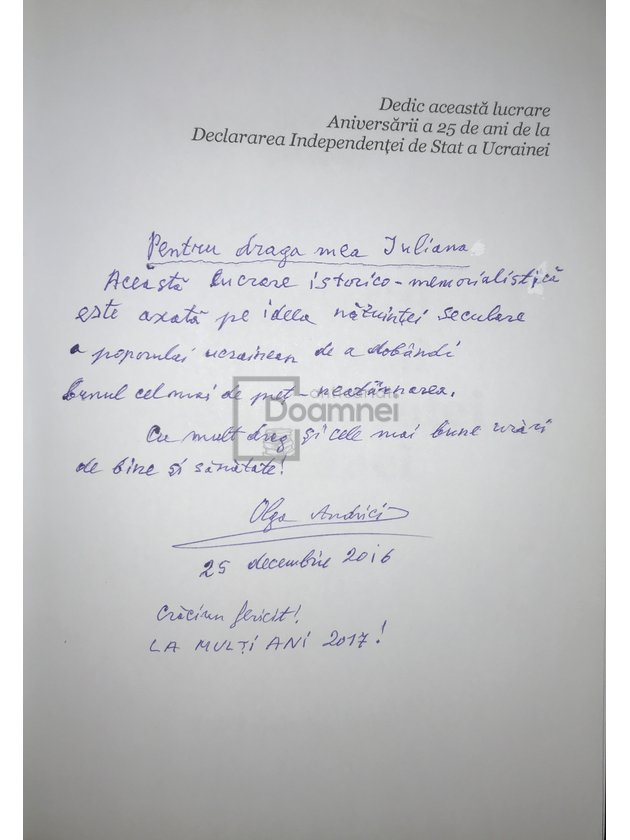 Dedic această lucrare
Aniversării a 25 de ani de la
Declararea Independenței de Stat a Ucrainei
Pentru draga mea Iuliana
Această lucrare istorico-memorialistică
este axată pe ideea năzuinței seculare
a poporului ucrainean de a dobândi
bunul cel mai de preț - neatârnarea.
Doamnei
Cu mult drag și cele mai bune urări
de bine și sănătate!
Olga Andrici
25 decembrie 2016
Crăciun fericit!
LA MULȚI ANI 2017!